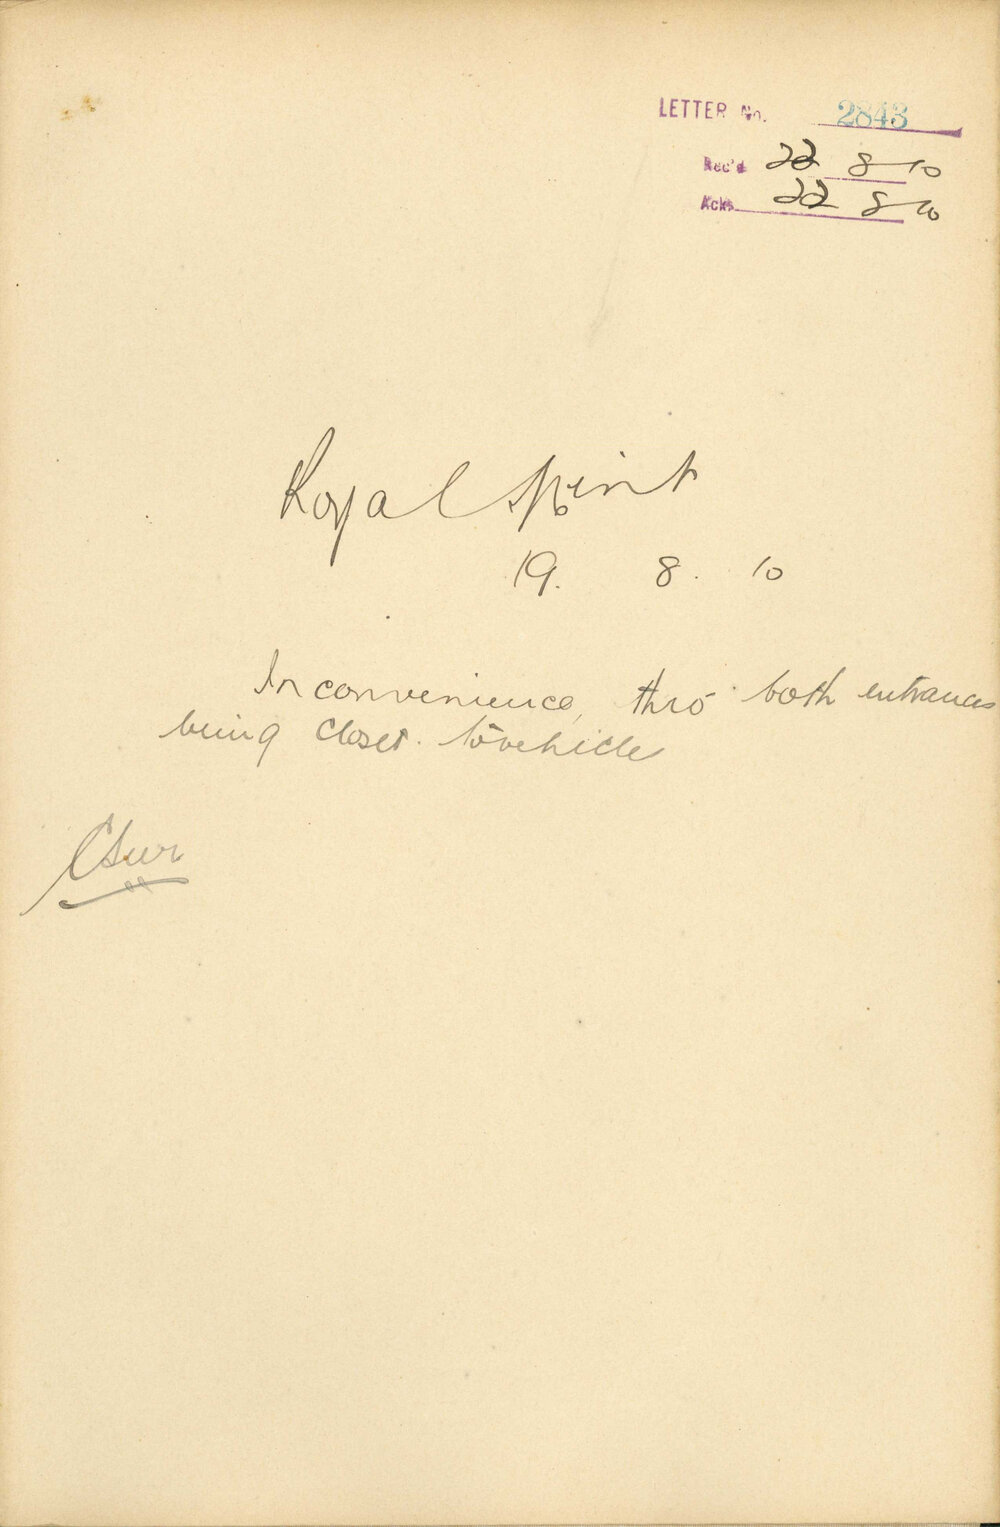 LETTER No. 2843
Rec'd 22 8 10
Ackn 22 8 10
Royal Mint
19. 8. 10
Inconvenience thro' both entrances
being closed to vehicles
CSur